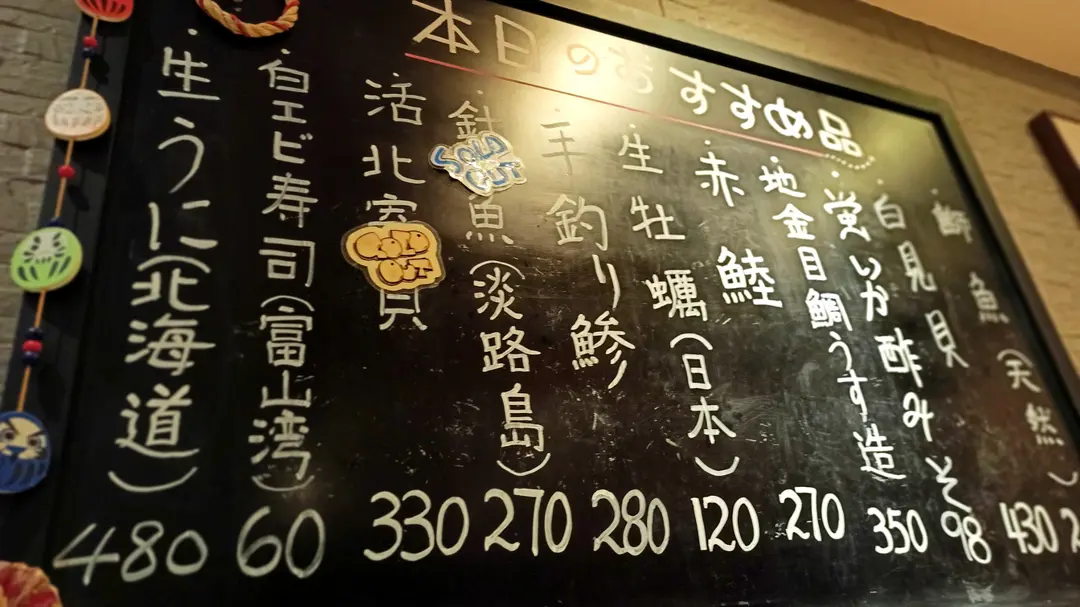 本日のおすすめ品
魚(天然)
・白見貝
・蛍いか酢みそ
・地金目鯛うす造
・赤鯥
・生牡蠣(日本)
・手釣り鯵
・針魚(淡路島)
SOLD OUT
・活北寄貝
・白エビ寿司(富山湾)
・生うに(北海道)
480 60 330 270 280 120 270 350 98 430